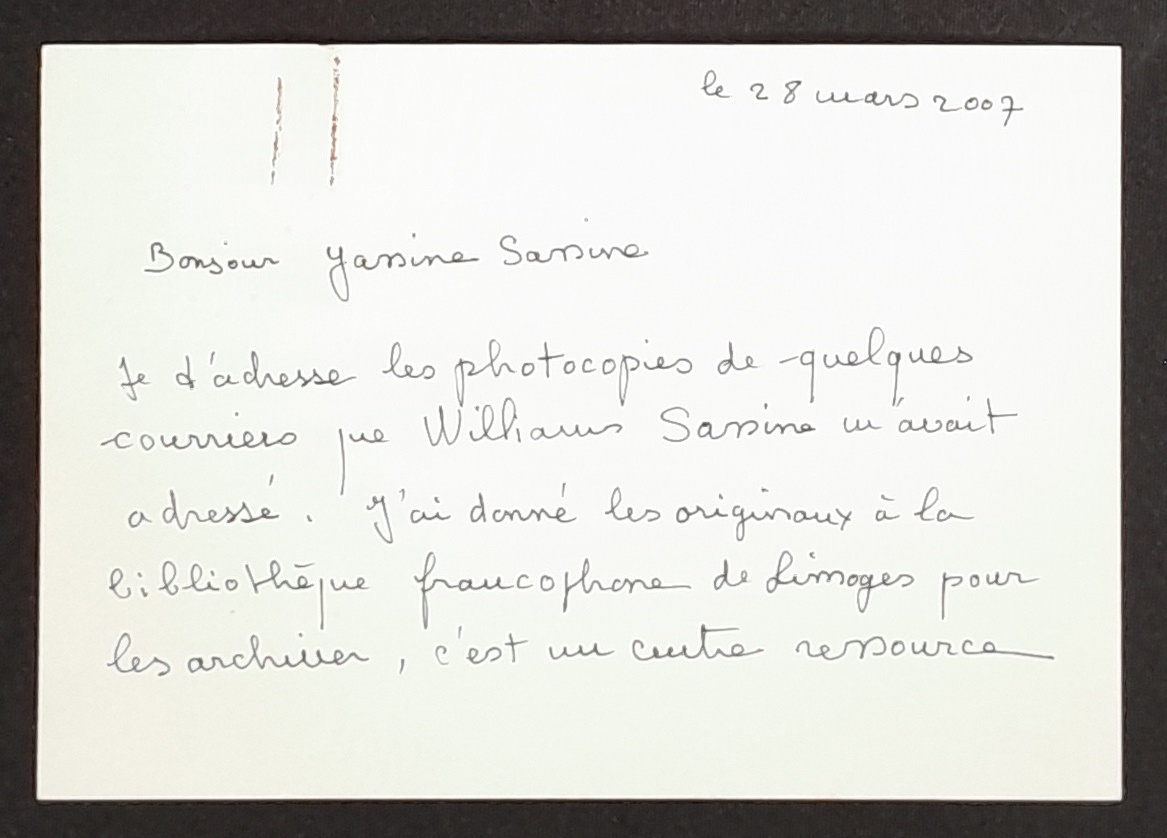 le 28 mars 2007
Bonjour Yassine Sassine
Je t'adresse les photocopies de quelques
courriers que Williams Sassine m'avait
adressé. J'ai donné les originaux à la
bibliothèque francophone de Limoges pour
les archiver, c'est un centre ressource